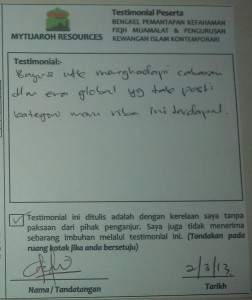 MYTIJAROH RESOURCES
Testimonial Peserta
BENGKEL PEMANTAPAN KEFAHAMAN
FIQH MUAMALAT & PENGURUSAN
KEWANGAN ISLAM KONTEMPORARI
Testimonial:-
Bagus utk menghadapi cabaran
dlm era global yg tak pasti
kategori mana riba ini terdapat.
Testimonial ini ditulis adalah dengan kerelaan saya tanpa
paksaan dari pihak penganjur. Saya juga tidak menerima
sebarang imbuhan melalui testimonial ini. (Tandakan pada
ruang kotak jika anda bersetuju)
2/3/13
Nama / Tandatangan
Tarikh